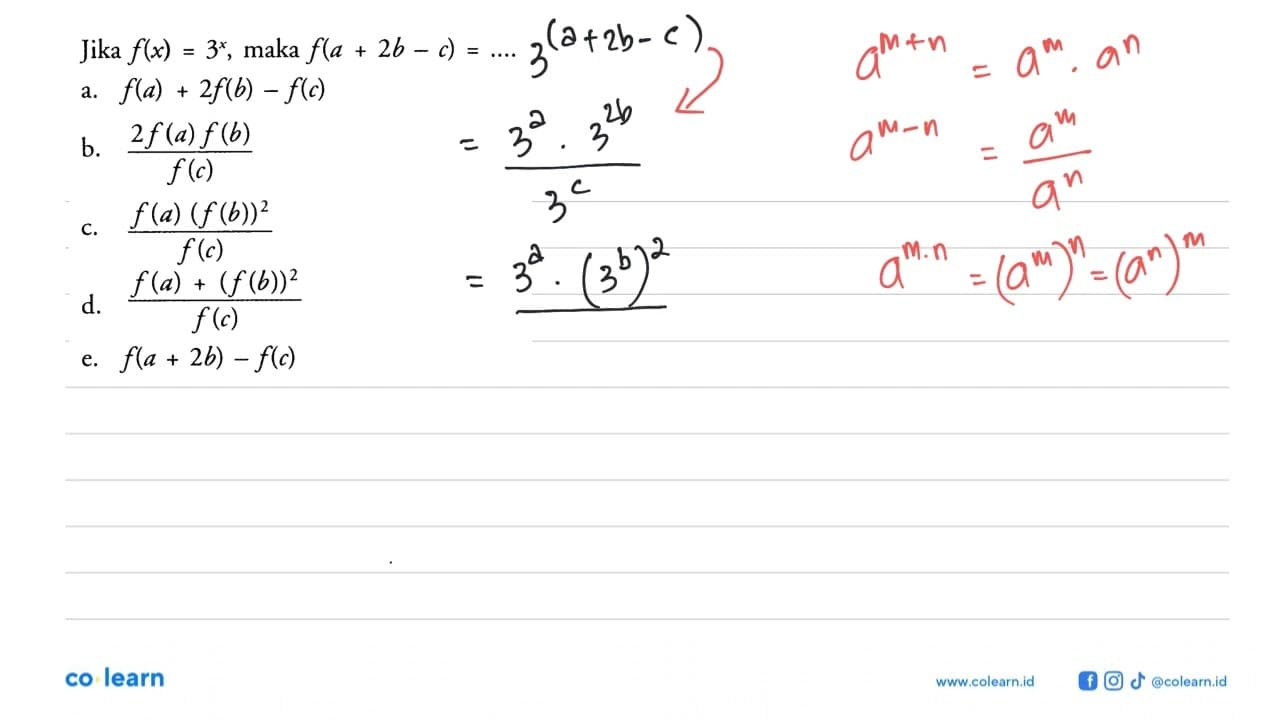 Jika f(x) = 3ˣ, maka f(a + 2b – c) = .... 3^(a+2b-c)
a. f(a) + 2f(b) – f(c)
b. 2f(a) f(b) / f(c)
c. f(a) (f(b))² / f(c)
d. f(a) + (f(b))² / f(c)
e. f(a + 2b) – f(c)
= 3^a . 3^2b / 3^c
= 3^a . (3^b)^2
a^m+n = a^m . a^n
a^m-n = a^m / a^n
a^m.n = (a^m)^n = (a^n)^m
co learn
www.colearn.id
@colearn.id